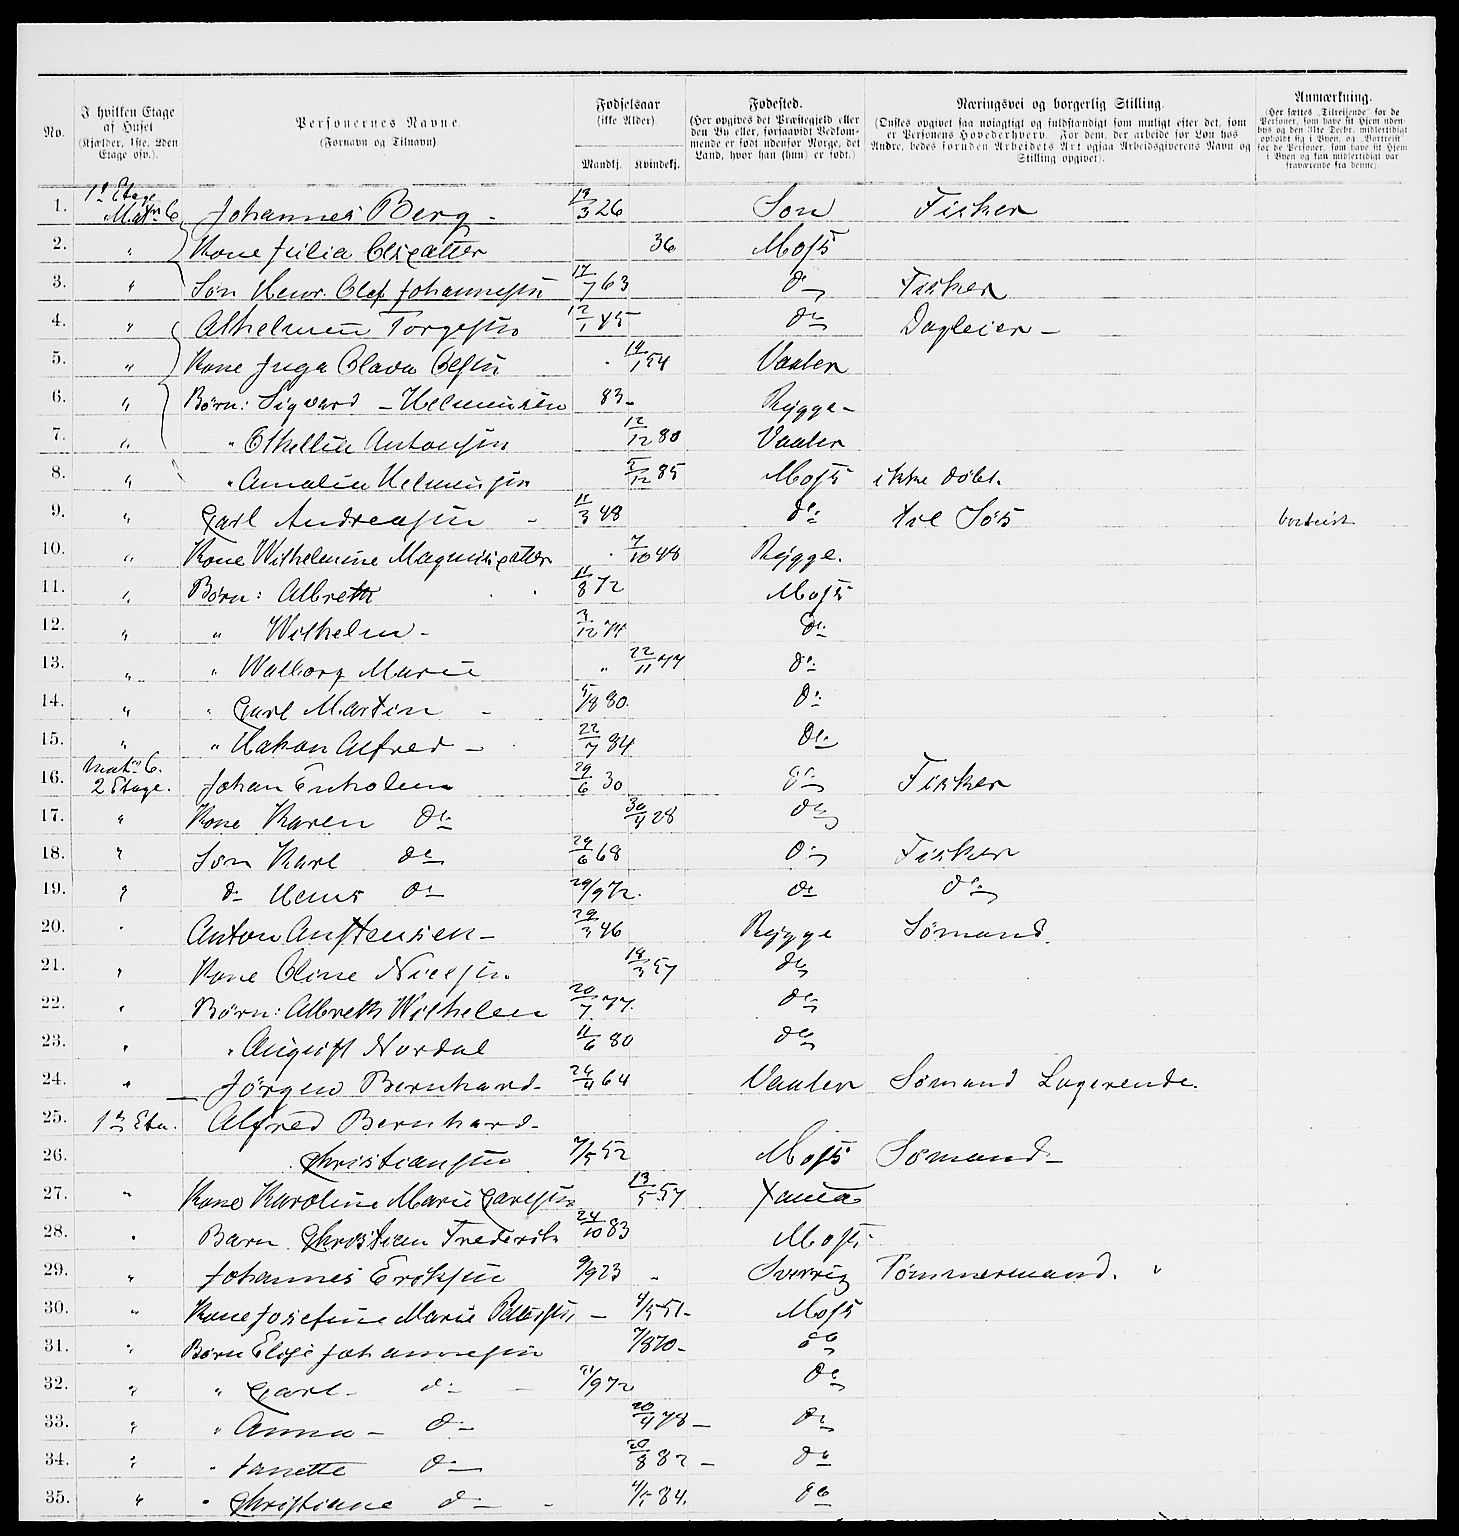 No. | I hvilken Etage af Huset (Kjælder, 1ste, 2den Etage osv.). | Personernes Navne. (Fornavn og Tilnavn) | Fødselsaar (ikke Alder). Mandkj. Kvindekj. | Fødested. (Her opgives det Præstegjeld eller den By eller, forsaavidt Vedkommende er født udenfor Norge, det Land, hvor han (hun) er født.) | Næringsvei og borgerlig Stilling. (Ønstes opgivet saa nøiagtigt og fuldstændigt som muligt efter det, som er Personens Hovederhverv. For dem, der arbeide for Løn hos Andre, bedes foruden Arbeidets Art ogsaa Arbeidsgiverens Navn og Stilling opgivet). | Anmærkning. (Her sættes „Tilreisende" for de Personer, som have sit Hjem udenbys og den 31te Decbr. midlertidigt opholdt sig i Byen, og „Bortreist" for de Personer, som have sit Hjem i Byen og kun midlertidigt var fraværende fra denne).
1. 1ste Etage Matr 6 Johannes Berg - 13/3 26 Son Fisker
2. " Kone Julia 36 Moss
3. " Søn Henr. Olaf Johannesen 17/7 63 do Fisker
4. " Torgesen 12/1 45 do Dagleier -
5. " Kone Inga Olava Olsen 14/1 54 Vaaler
6. " Børn: Sigvard - Helminsen 83 - Rygge -
7. " " Antonsen 12/12 80 Vaaler
8. " " Amalia Helminsen 5/12 85 Moss ikke døbt.
9. " Carl Andreasen - 11/3 48 do til Søs bortreist
10. " Kone Wilhelmine Magnusdatter 7/10 48 Rygge.
11. " Børn: Albreth 11/8 72 Moss
12. " " Wilhelm - 3/12 74 do
13. " " Walborg Marie " 22/11 77 do
14. " " Carl Martin - 5/8 80 do
15. " " Hakon Alfred - 22/7 84 do
16. Matr 6. 2 Etage. Johan Enholm 29/6 30 do Fisker
17. " Kone Karen do 30/4 28 do
18. " Søn Karl do 29/6 68 do Fisker
19. " do Hans do 29/9 72. do do
20. " Anton Anstensen - 29/3 46 Rygge Sømand.
21. " Kone Oline Nielsen. 18/3 57 do
22. " Børn: Albreth Wilhelm 20/7 77. do
23. " " August Nordal 11/6 80 do
24. " Jörgen Bernhard - 24/4 64 Vaaler Sømand Logerende.
25. 1ste Eta. Alfred Bernhard -
26. Christiansen 7/5 52 Moss Sømand -
27. " Kone Karoline Marie Carlsen 13/5 57
28. " Barn Christian Frederik 24/10 83 Moss
29. " Johannes Eriksen 9/9 23 - Sverrig Tømmermand. "
30. " Kone Josefine Marie Pettersen - 4/5 51 - Moss
31. " Børn Elise Johannesen 7/8 70 - do
32. " " Carl - do - 21/9 72 do
33. " " Anna - do 20/4 78 - do
34. " " Janette do 20/8 82 - do
35. " " Christiane do - 4/5 84. do